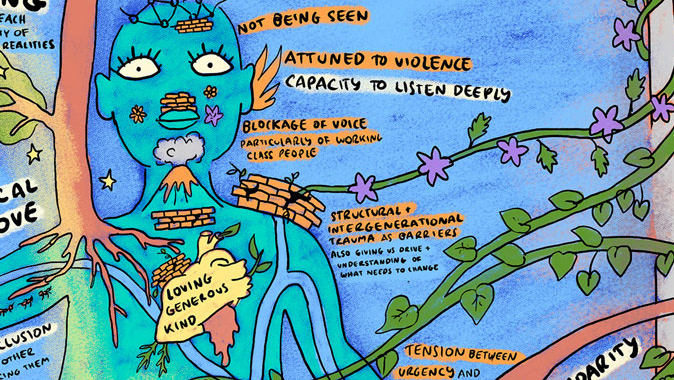 NG
EACH
Y OF
REALITIES
NOT BEING SEEN
ATTUNED TO VIOLENCE
CAPACITY TO LISTEN DEEPLY
BLOCKAGE OF VOICE
PARTICULARLY OF WORKING
CLASS PEOPLE
CAL
OVE
STRUCTURAL +
INTERGENERATIONAL
TRAUMA AS BARRIERS
ALSO GIVING US DRIVE +
UNDERSTANDING OF
WHAT NEEDS TO CHANGE
LOVING
GENEROUS
KIND
LLUSION
OTHER
ING THEM
TENSION BETWEEN
URGENCY AND
DARITY